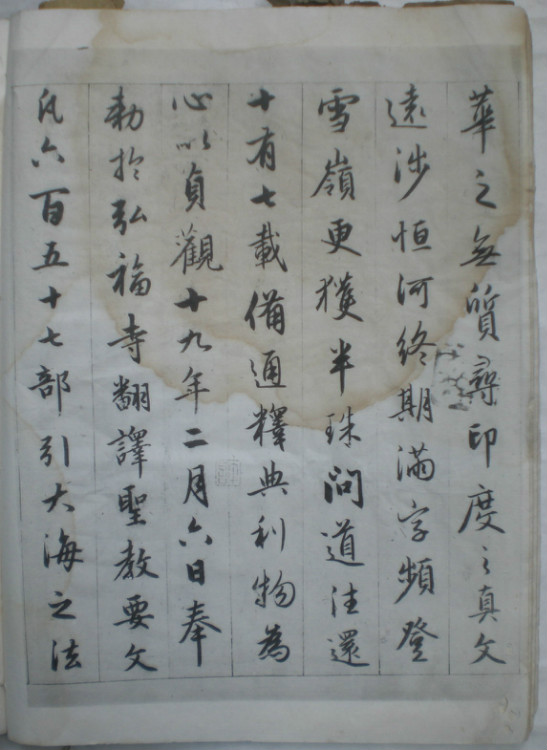 華之無質尋印度之真文
遠涉恒河終期滿字頻登
雪嶺更獲半珠問道往還
十有七載備通釋典利物為
心以貞觀十九年二月六日奉
勅於弘福寺翻譯聖教要文
凡六百五十七部引大海之法